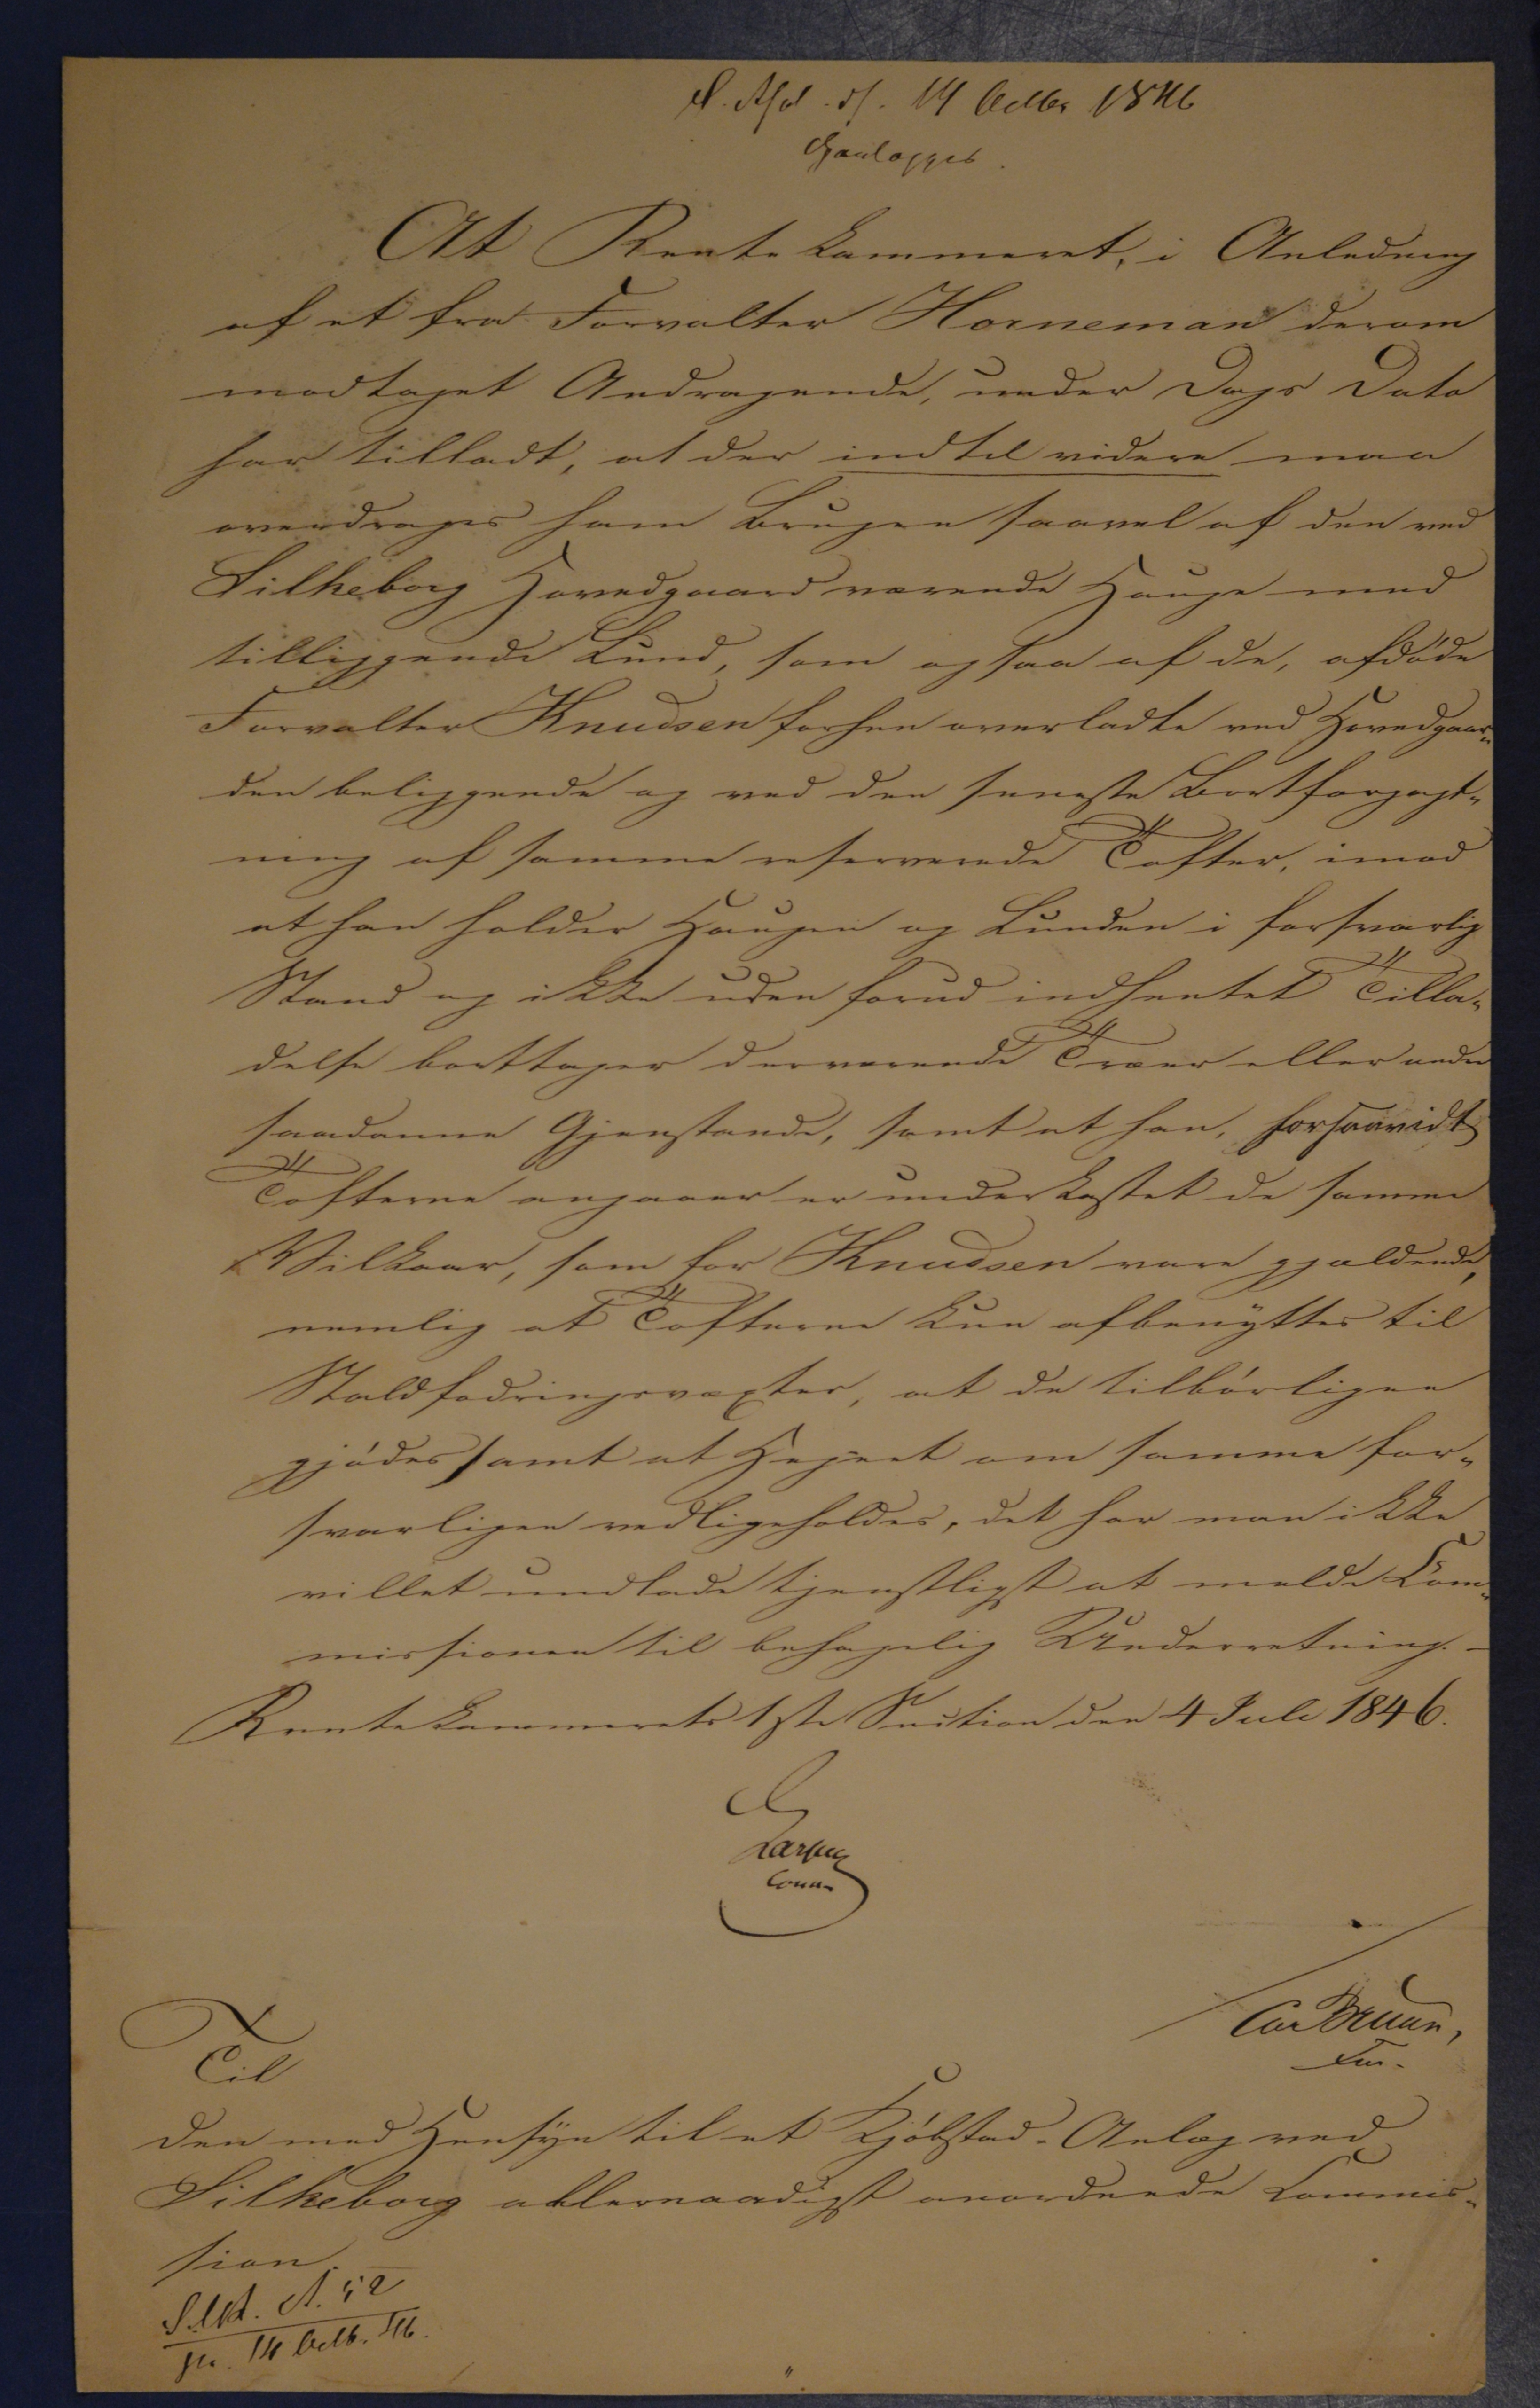 14 Octbr 1846
henlægges.
At Rentekammeret, i Anledning
af et fra Forvalter Horneman derom
modtaget Andragende, under Dags Dato
har tilladt, at der indtil videre maa
overdrages ham Brugen saavel af den ved
Silkeborg Hovedgaard værende Hauge med
tilliggende Lund, som ogsaa af de, afdøde
Forvalter Knudsen forhen overladte ved Hovedgaar„
den beliggende og ved den seneste Bortforpagt„
ning af samme reserverede Tofter, imod
at han holder Haugen og Lunden i forsvarlig
Stand og ikke uden forud indhentet Tilla„
delse borttager derværende Træer eller andre
saadanne Gjenstande, samt at han, forsaavidt
Tofterne angaaer er underkastet de samme
Vilkaar, som for Knudsen vare gjældende,
nemlig at Tofterne kun afbenyttes til
Staldfodringsvæxter, at de tilbørligen
gjødes samt at Hegnet om samme for„
svarligen vedligeholdes, det har man ikke
villet undlade tjenstligst at melde Com„
missionen til behagelig Underretning. —
Rentekammerets 1ste Section den 4 Juli 1846.
Larsen
Bruun,
Til
den med Hensyn til et Kjøbstad-Anlæg ved
Silkeborg allernaadigst anordnede Commis„
sion.
N. 52
14 Octb. 46.